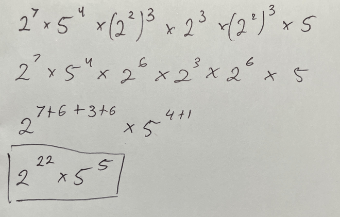 2⁷ × 5⁴ × (2²)³ × 2³ × (2²)³ × 5
2⁷ × 5⁴ × 2⁶ × 2³ × 2⁶ × 5
2⁷⁺⁶⁺³⁺⁶ × 5⁴⁺¹
2²² × 5⁵